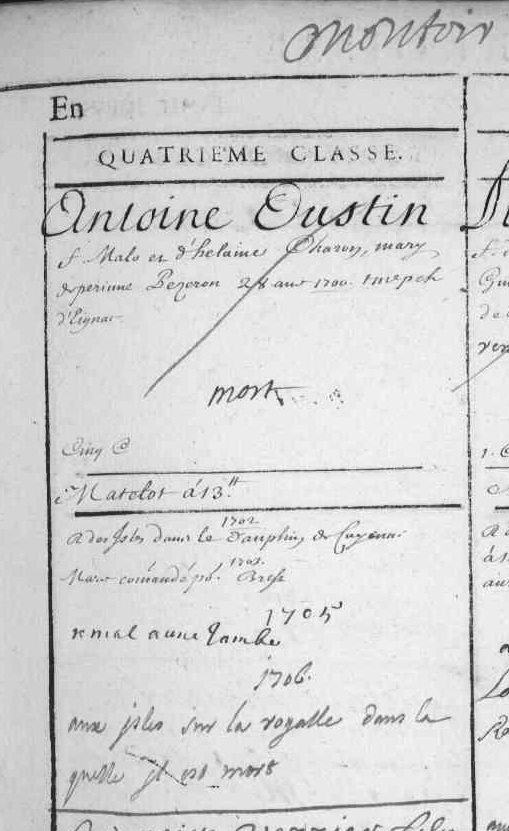 montoir
En
QUATRIEME CLASSE.
Antoine Oustin
f. Malo et d'helaine Charon, mary
de perinne Bezeron 28 ans 1700. tm pch
d'Lignac
mort
Cinq
Matelot à 13.tt
1702
a des Isles dans le Dauphin de Cayenne
1703.
comandé po. Brest
1705
mal a une Jambe
1706.
aux isles sur la royalle dans la
quelle il est mort